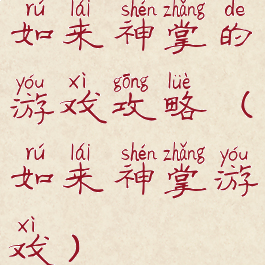 rú lái shén zhǎng de
如来神掌的
yóu xì gōng lüè
游戏攻略（
rú lái shén zhǎng yóu
如来神掌游
xì
戏）